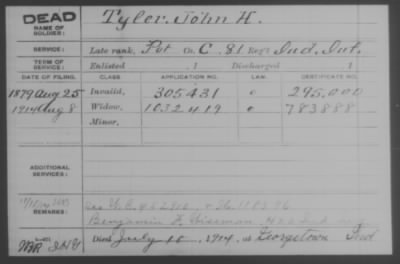 DEAD
NAME OF SOLDIER: Tyler, John H.
SERVICE: Late rank, Pvt Co. C, 81 Reg't Ind. Inf.
TERM OF SERVICE: Enlisted , 1 Discharged , 1
DATE OF FILING. CLASS. APPLICATION NO. LAW. CERTIFICATE NO.
1879 Aug 25 Invalid, 305431 295.000
1914 Aug 8 Widow, 1032419 783888
Minor,
ADDITIONAL SERVICES:
REMARKS:
Benjamin F.
Died July 10, 1914, at Georgetown Ind